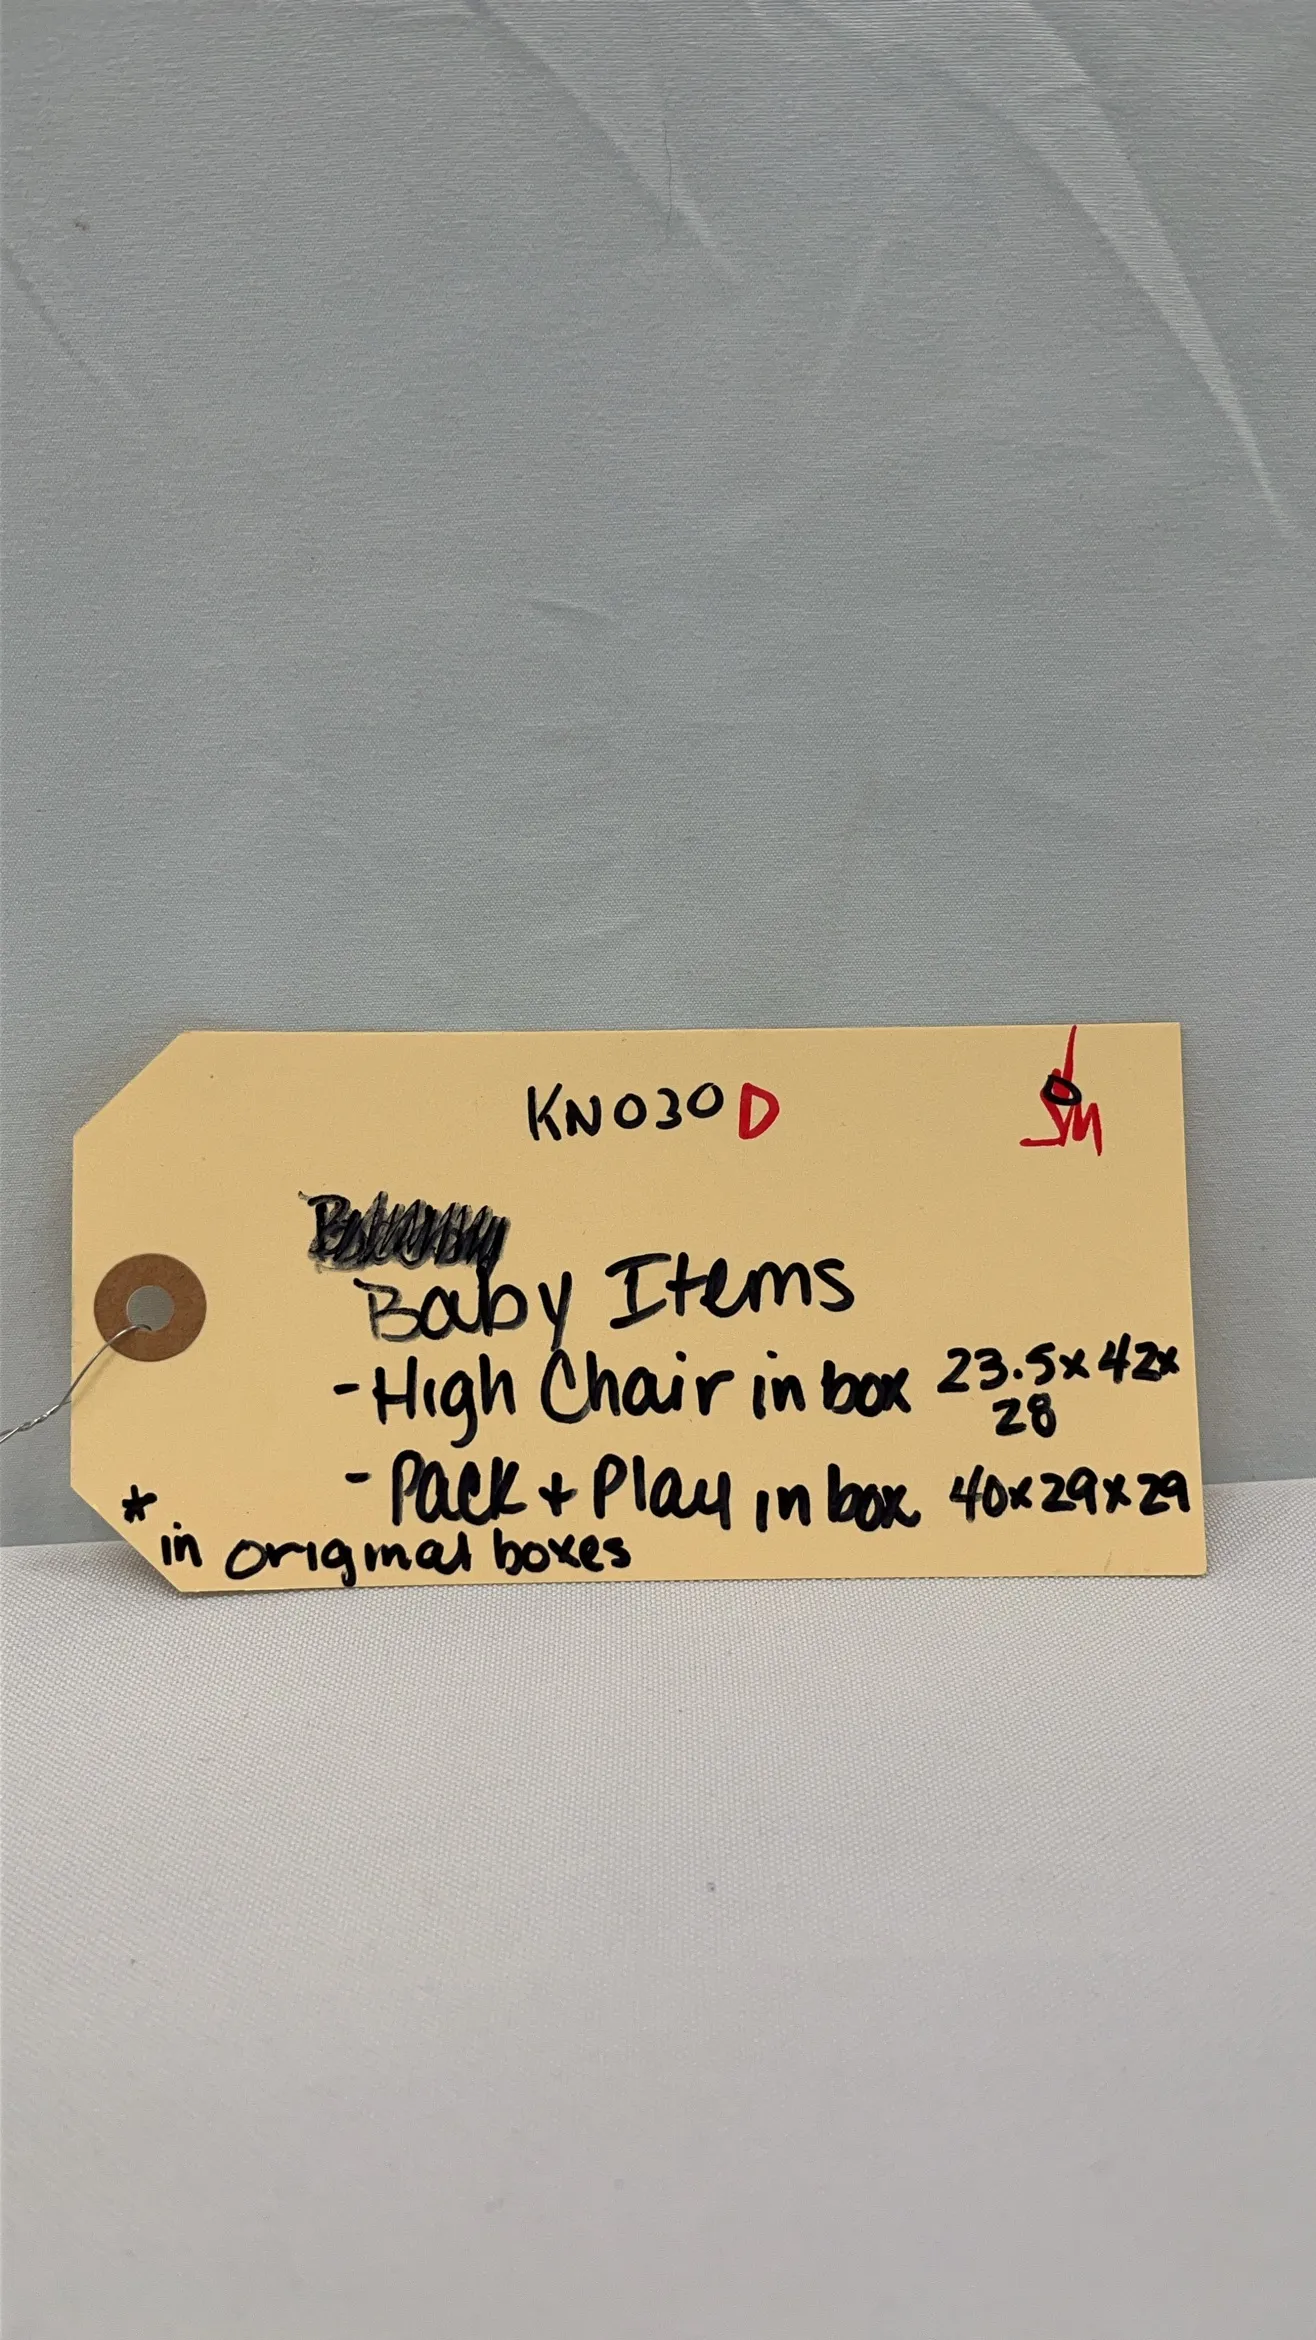 KN030D
Baby Items
- High Chair in box 23.5x42x
28
- Pack + Play in box 40x29x29
*
in original boxes